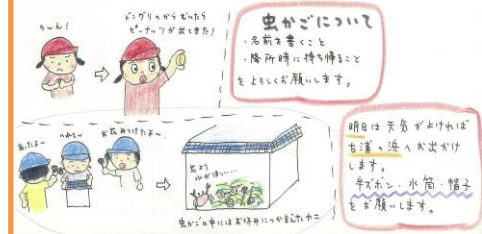 う〜ん!
ドングリのから むいたら
ピーナッツが出てきた!
虫かごについて
・名前を書くこと
・降所時に持ち帰ること
をよろしくお願いします。
あったよ〜
いれて〜
お花みつけたよ〜
花より
水がほしい…
虫かごの中にはお休みにつかまえたカニ
明日は天気がよければ
七濱の浜へお出かけ
します。
半ズボン・水筒・帽子
をお願いします。